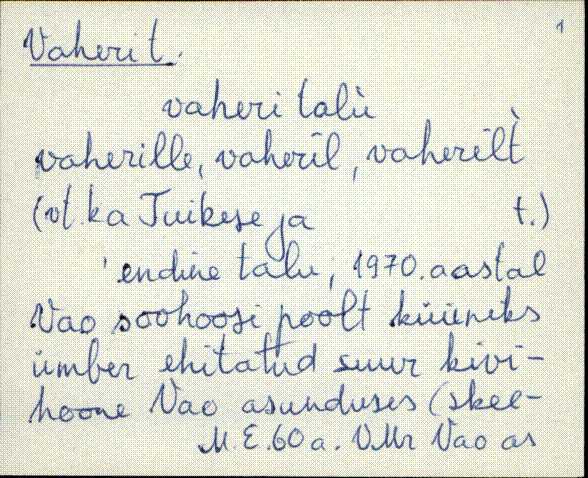 1
Vaheri t.
vaheri talù
vaherille, vaheril, vaherilt̀
(vt. ka Tuikese ja t.)
'endine talu, 1970. aastal
Vao soohoosi poolt küüniks
ümber ehitatud suur kivi-
hoone Vao asunduses (skee-
M. E. 60 a. VMr Vao as